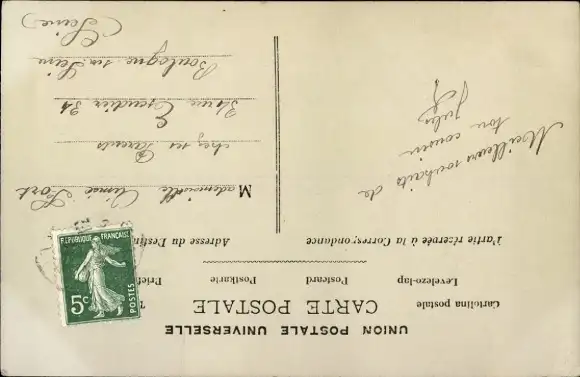 UNION POSTALE UNIVERSELLE
CARTE POSTALE
Cartolina postale
Postcard
Postkarte
Levelezo-lap
Partie réservée à la Correspondance
Adresse du Destin
Meilleurs souhaits de
ton cousin
Jules
Mademoiselle Aimée Port
chez ses Parents
31 rue Escudier 31
Boulogne sur Seine
(Seine)
REPUBLIQUE FRANÇAISE
5c
POSTES